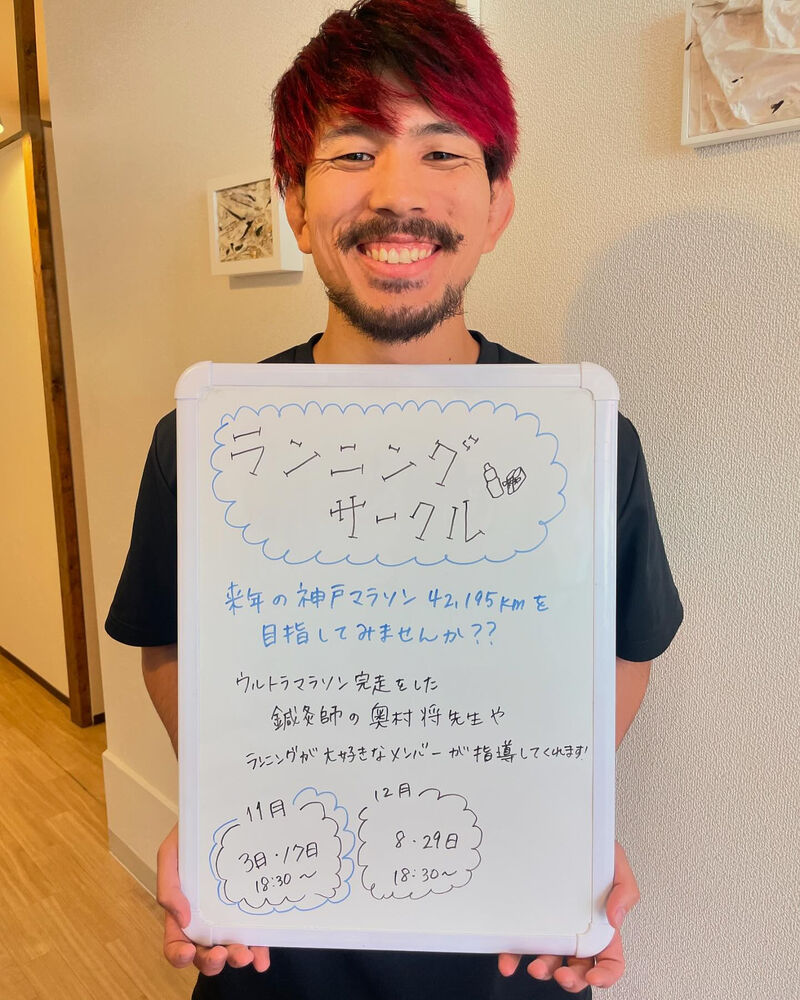 ランニング
サークル
来年の神戸マラソン42,195kmを
目指してみませんか??
ウルトラマラソン完走をした
鍼灸師の奥村将先生や
ランニングが大好きなメンバーが指導してくれます!
11月
3日・17日
18:30〜
12月
8・29日
18:30〜